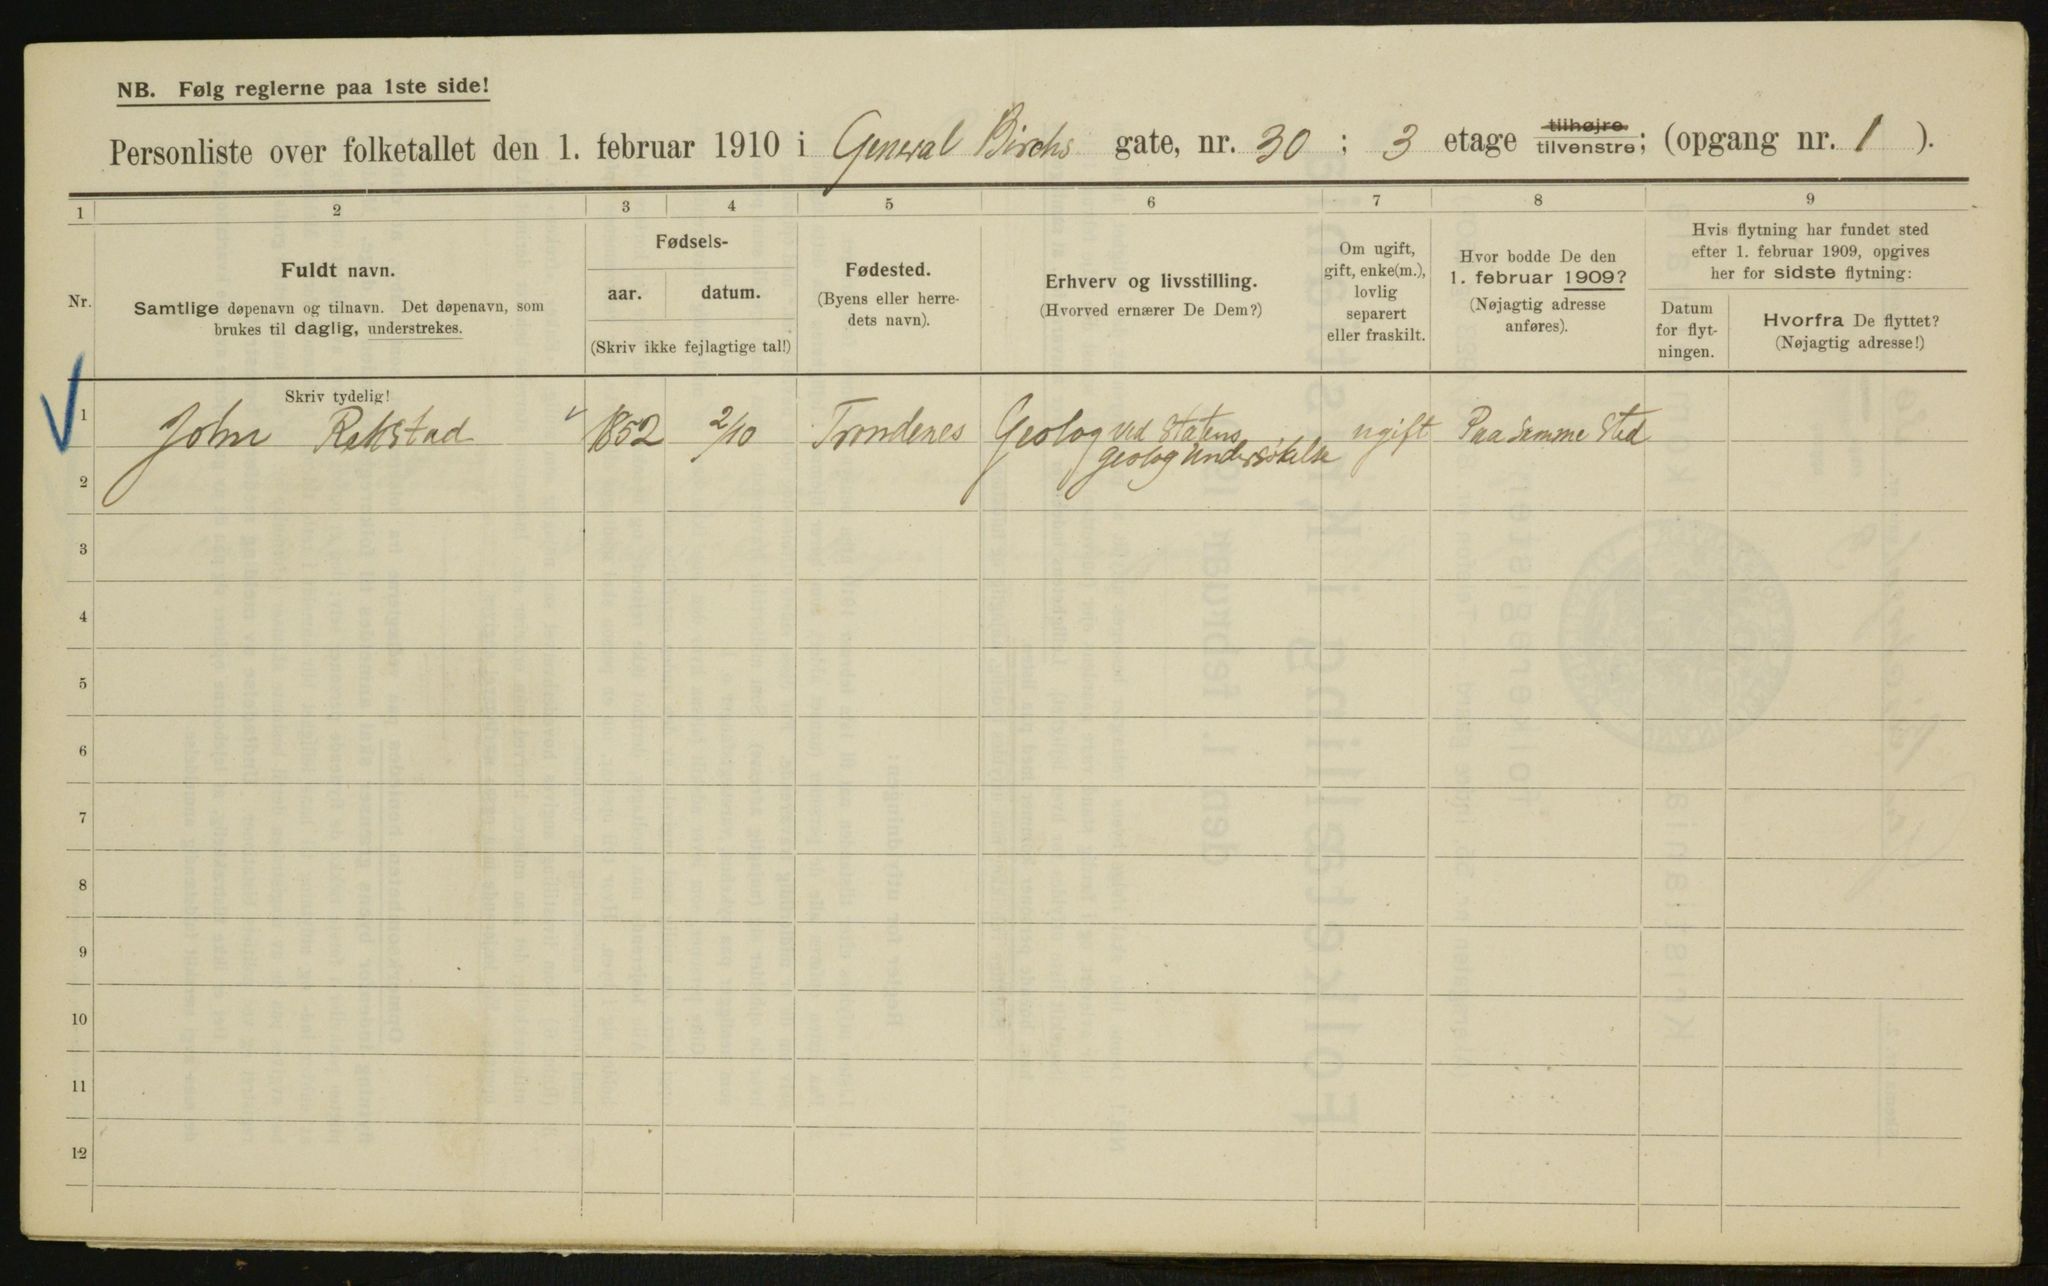 NB. Følg reglerne paa 1ste side!
Personliste over folketallet den 1. februar 1910 i General Birchs gate, nr. 30 ; 3 etage tilhøjre tilvenstre; (opgang nr. 1 ).
1 2 3 4 5 6 7 8 9
Nr.
Fuldt navn.
Samtlige døpenavn og tilnavn. Det døpenavn, som
brukes til daglig, understrekes.
Fødsels-
aar. datum.
(Skriv ikke fejlagtige tal!)
Fødested.
(Byens eller herre-
dets navn).
Erhverv og livsstilling.
(Hvorved ernærer De Dem?)
Om ugift,
gift, enke(m.),
lovlig
separert
eller fraskilt.
Hvor bodde De den
1. februar 1909?
(Nøjagtig adresse
anføres).
Hvis flytning har fundet sted
efter 1. februar 1909, opgives
her for sidste flytning:
Datum
for flyt-
ningen.
Hvorfra De flyttet?
(Nøjagtig adresse!)
Skriv tydelig!
1 John Rekstad 1852 2/10 Trondenes Geolog ved Statens ugift Paa samme Sted
geolog Undersøkelse
2
3
4
5
6
7
8
9
10
11
12